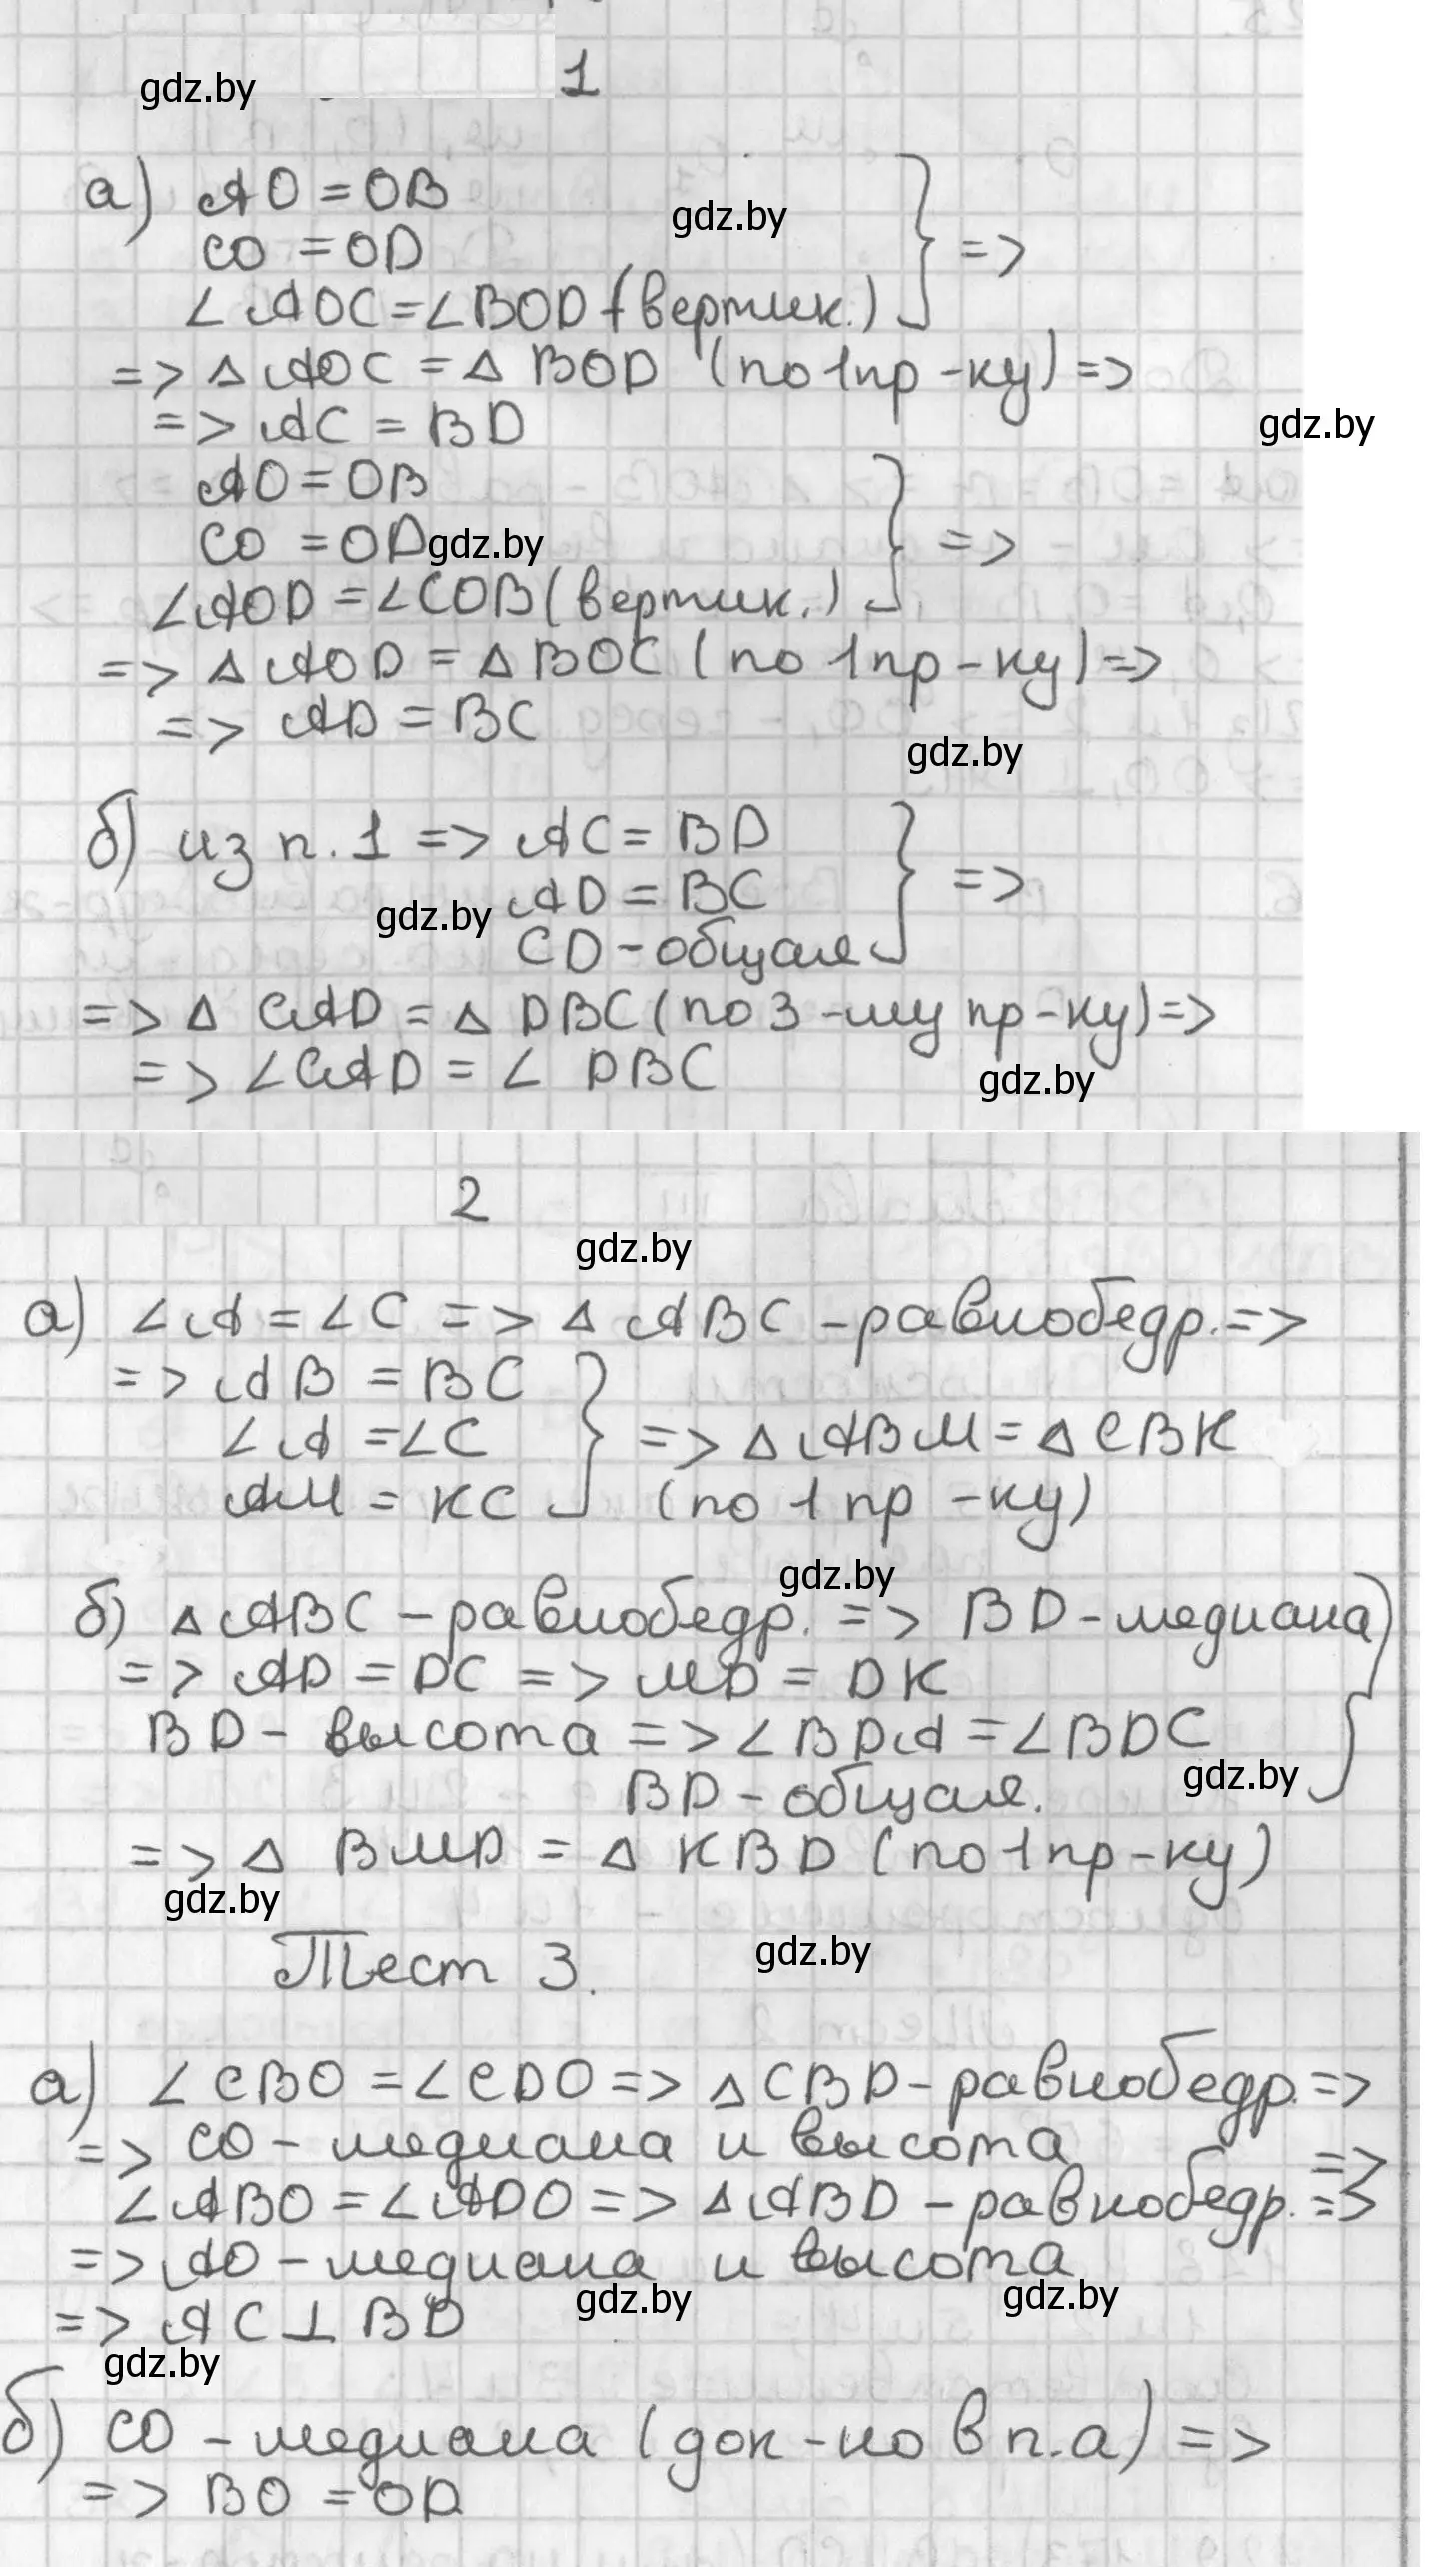 gdz.by
1
а) AO = OB
gdz.by
CO = OD
=>
∠AOC = ∠BOD (вертик.)
=> △ AOC = △ BOD (по 1 пр-ку) =>
=> AC = BD
gdz.by
AO = OB
CO = OD
gdz.by
=>
∠AOD = ∠COB (вертик.)
=> △ AOD = △ BOC (по 1 пр-ку) =>
=> AD = BC
gdz.by
б) из п. 1 => AC = BD
AD = BC
=>
gdz.by
CD - общая
=> △ CAD = △ DBC (по 3-му пр-ку) =>
=> ∠CAD = ∠ DBC
gdz.by
2
gdz.by
а) ∠A = ∠C => △ ABC - равнобедр. =>
=> AB = BC
∠A = ∠C => △ ABM = △ CBK
AM = KC (по 1 пр-ку)
gdz.by
б) △ ABC - равнобедр. => BD - медиана
=> AD = DC => MD = DK
BD - высота => ∠BDA = ∠BDC
gdz.by
BD - общая.
=> △ BMD = △ KBD (по 1 пр-ку)
gdz.by
Тест 3.
gdz.by
а) ∠CBO = ∠CDO => △ CBD - равнобедр. =>
=> CO - медиана и высота =>
∠ABO = ∠ADO => △ ABD - равнобедр. =>
=> AO - медиана и высота
gdz.by
gdz.by
=> AC ⊥ BD
gdz.by
б) CO - медиана (док-но в п. а) =>
=> BO = OD